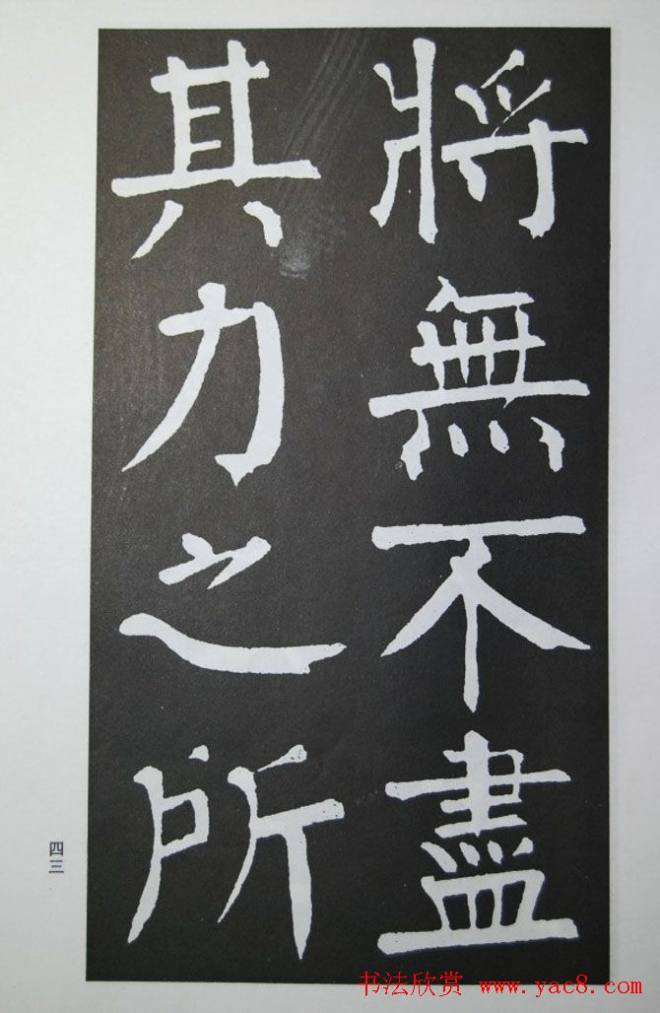 將無不盡
其力之所
四三
书法欣赏 www.yac8.com